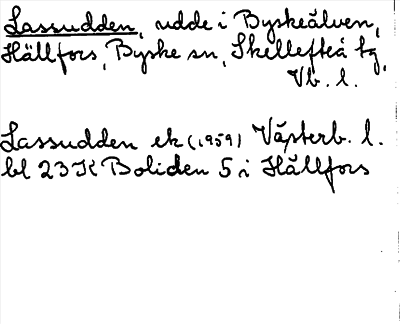 Lassudden, udde i Byskeälven,
Hällfors, Byske sn, Skellefteå tg,
Vb. l.
Lassudden ek (1959) Västerb. l.
bl 23 K Boliden 5 i Hällfors